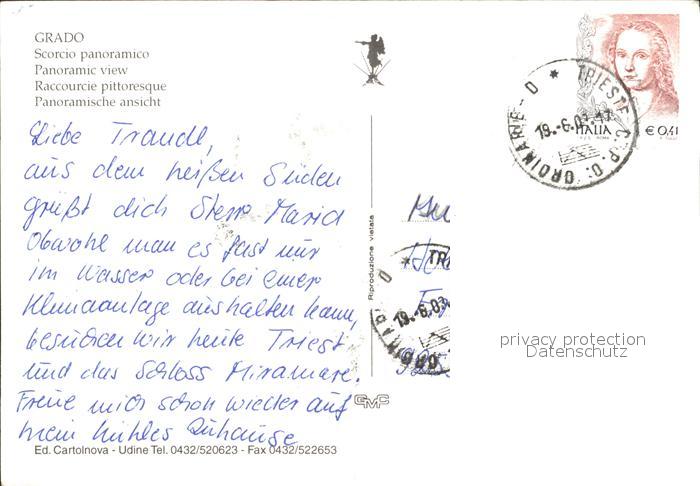 GRADO
Scorcio panoramico
Panoramic view
Raccourcie pittoresque
Panoramische ansicht
Liebe Traudl,
aus dem heißen Süden
grüßt dich Maria
Obwohl man es fast nur
im Wasser oder bei einer
Klimaanlage aushalten kann,
besuchen wir heute Triest
und das Schloss Miramare.
Freue mich schon wieder auf
mein kühles Zuhause
Ed. Cartolnova - Udine Tel. 0432/520623 - Fax 0432/522653
Riproduzione vietata
GMC
TRIESTE C.P.O. ORDINARIE - D *
19.-6.03
ITALIA
€ 0,41
TR
19.-6.03
ORDINAR D *
privacy protection
Datenschutz